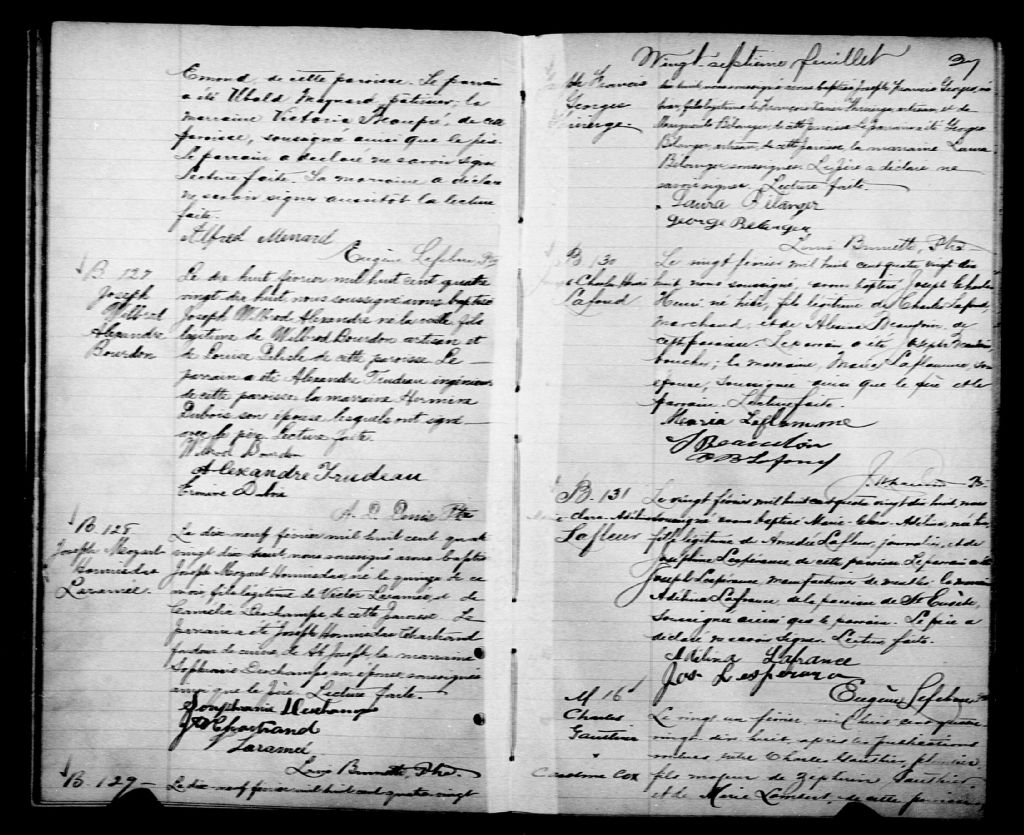 Emond, de cette paroisse. Le parrain
a été Ubald Meynard, pâtissier; la
marraine Victoria Beaupré, de cette
paroisse, soussigné ainsi que le père.
Le parrain a déclaré ne savoir signer
Lecture faite. La marraine a déclaré
ne savoir signer aussitôt la lecture
faite.
Alfred Menard
Eugène Lefebvre Ptr
B. 127
Joseph
Wilfred
Alexandre
Bourdon
Le dix huit février mil huit cent quatre
vingt dix huit, nous soussigné avons baptisé
Joseph Wilfrod Alexandre né la veille fils
légitime de Wilbrod Bourdon artisan et
de Louise Delisle de cette paroisse Le
parrain a été Alexandre Trudeau ingénieur
de cette paroisse la marraine Hermine
Dubois son épouse lesquels ont signé
avec le père Lecture faite.
Wilbrod Bourdon
Alexandre Trudeau
Ermine Dubois
A. D. Denis Ptr
B. 128
Joseph Mozart
Honmidas
Laramée.
Le dix neuf février mil huit cent quatre
vingt dix huit, nous soussigné avons baptisé
Joseph Mozart Honmidas, né le quinze de ce
mois, fils légitime de Victor Laramée, et de
Cornélia Deschamps de cette paroisse. Le
parrain a été Joseph Honmidas Chartrand
de St Joseph, la marraine
Sophranie Deschamps son épouse, soussignés
ainsi que le père. Lecture faite.
Sophranie Deschamps
J H Chartrand
V Laramé
Louis Brunette, Ptr.
B. 129
Le dix neuf février mil huit cent quatre vingt
Vingt septième feuillet 37
Francis
Georges
dix huit, nous soussigné avons baptisé Joseph Francis Georges, né
fils légitime de François Xavier artisan, et de
Marguerite Bélanger, de cette paroisse Le parrain a été Georges
Bélanger, artisan, de cette paroisse, la marraine Laura
Bélanger soussignés. Le père a déclaré ne
savoir signer. Lecture faite.
Laura Bélanger
George Belanger
Louis Brunette, Ptr
B. 130
Joseph Charles Henri
Lafond
Le vingt février mil huit cent quatre vingt dix
huit, nous soussigné, avons baptisé Joseph Charles
Henri né hier, fils légitime de Charles Lafond,
marchand, et de Albina Beaudoin, de
cette paroisse. Le parrain a été Joseph Beaudoin
boucher; la marraine, Maria Laflamme, son
épouse; soussignés ainsi que le père et le
parrain. Lecture faite.
Maria Laflamme
J Beaudoin
C B Lafond
B. 131
Marie Clara Adelina
Lafleur
Le vingt février mil huit cent quatre vingt dix huit, nous
soussigné avons baptisé Marie Clara Adelina, née hier,
fille légitime de Amédée Lafleur, journalier, et de
Joséphine Lespérance de cette paroisse. Le parrain a été
Joseph Lespérance manufacturier de meubles la marraine
Adelina Lafrance, de la paroisse de St Eusèbe,
soussignée ainsi que le parrain. Le père a
déclaré ne savoir signer. Lecture faite.
Adelina Lafrance
Jos. Lesperance
Eugène Lefebvre, Ptr
M 16
Charles
Gauthier
&
Caroline Cox
Le vingt un février, mil huit cent quatre
vingt dix huit, après les publications
entre Charles Gauthier,
fils majeur de Zéphirin Gauthier
et de Marie Lambert, de cette paroisse